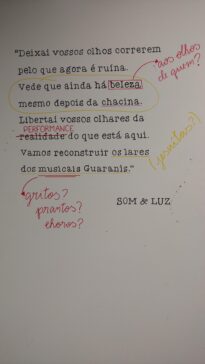 "Deixai vossos olhos correrem
pelo que agora é ruína.
Vede que ainda há beleza
aos olhos
de quem?
mesmo depois da chacina.
Libertai vossos olhares da
PERFORMANCE
realidade do que está aqui.
(jesuítas?)
Vamos reconstruir os lares
dos musicais Guaranis."
gritos?
prantos?
choros?
SOM & LUZ